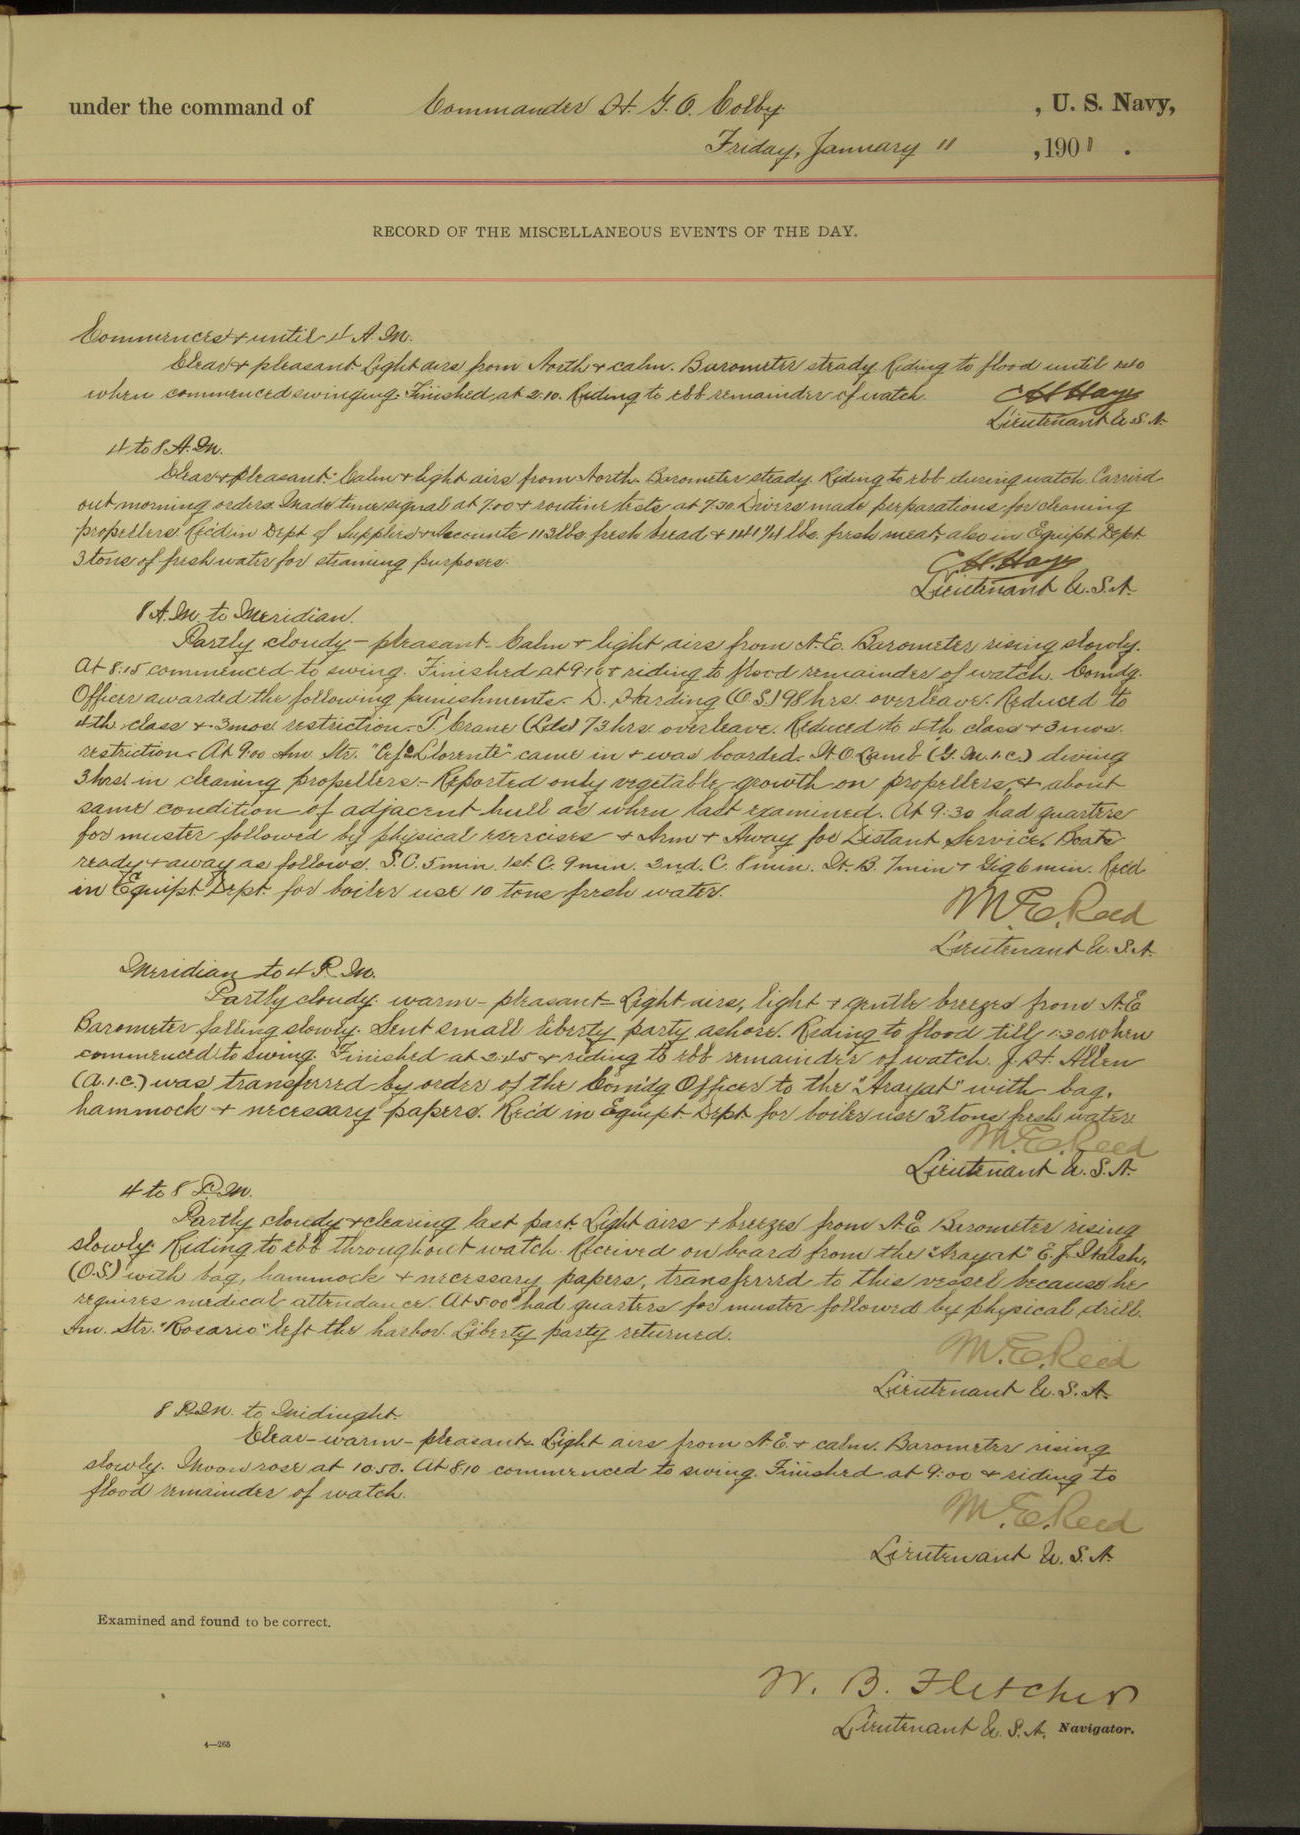 under the command of Commander H. G. O. Colby, U. S. Navy,
Friday, January 11, 1901.
RECORD OF THE MISCELLANEOUS EVENTS OF THE DAY.
Commences & until 4 A.M.
Clear & pleasant. Light airs from North & calm. Barometer steady. Riding to flood until
when commenced swinging. Finished at 2.10. Riding to ebb remainder of watch.
C H Hays
Lieutenant U.S.N.
4 to 8 A.M.
Clear & pleasant. Calm & light airs from North. Barometer steady. Riding to ebb during watch. Carried
out morning orders. Made time signal at 7.00 & routine tests at 7.30. Divers made perparations for cleaning
propellers. Rec'd in Dept of Supplies & Accounts 113 lbs. fresh bread & 141 1/4 lbs. fresh meat, also in Equipt. Dept
3 tons of fresh water for steaming purposes.
C. H. Hays
Lieutenant U.S.N.
8 A.M. to Meridian.
Partly cloudy - pleasant. Calm & light airs from N.E. Barometer rising slowly.
At 8.15 commenced to swing. Finished at 9.10 & riding to flood remainder of watch. Comdg.
Officer awarded the following punishments. D. Harding (O.S.) 98 hrs. overleave. Reduced to
4th class & 3 mos restriction. P. Crane (Lds) 73 hrs overleave. Reduced to 4th class & 3 mos.
restriction. At 9.00 Am. Str. "Llorente" came in & was boarded. H. O. Lamb (G.M.1.c.) diving
3 hrs. in cleaning propellers - Reported only vegetable growth on propellers & about
same condition of adjacent hull as when last examined. At 9:30 had quarters
for muster followed by physical exercises & Arm & Away for Distant Service. Boats
ready & away as follows. S.C. 5 min. 1st. C. 9 min. 2nd. C. 8 min. St. B. 7 min & Gig 6 min. Rec'd
in Equipt Dept. for boiler use 10 tons fresh water.
M. E. Reed
Lieutenant U.S.N.
Meridian to 4 P.M.
Partly cloudy - warm - pleasant - Light airs, light & gentle breezes from N.E.
Barometer falling slowly. Sent small liberty party ashore. Riding to flood till 1.30 when
commenced to swing. Finished at 2.45 & riding to ebb remainder of watch. J. H. Allen
(a.1.c.) was transferred by order of the Com'dg Officer to the "Arayat" with bag,
hammock & necessary papers. Rec'd in Equipt Dept for boiler use 3 tons fresh water
M. E. Reed
Lieutenant U.S.N.
4 to 8 P.M.
Partly cloudy & clearing last part. Light airs & breezes from N.E. Barometer rising
slowly. Riding to ebb throughout watch. Received on board from the "Arayat" E. J. Walsh,
(O.S.) with bag, hammock & necessary papers, transferred to this vessel because he
requires medical attendance. At 5.00 had quarters for muster followed by physical drill.
Am. Str. "Rosario" left the harbor. Liberty party returned.
M. E. Reed
Lieutenant U.S.N.
8 P.M. to Midnight.
Clear - warm - pleasant - Light airs from N.E. & calm. Barometer rising
slowly. Moon rose at 10.50. At 8.10 commenced to swing. Finished at 9:00 & riding to
flood remainder of watch.
M. E. Reed
Lieutenant U.S.N.
Examined and found to be correct.
W. B. Fletcher
Lieutenant U.S.N. Navigator.
4—265